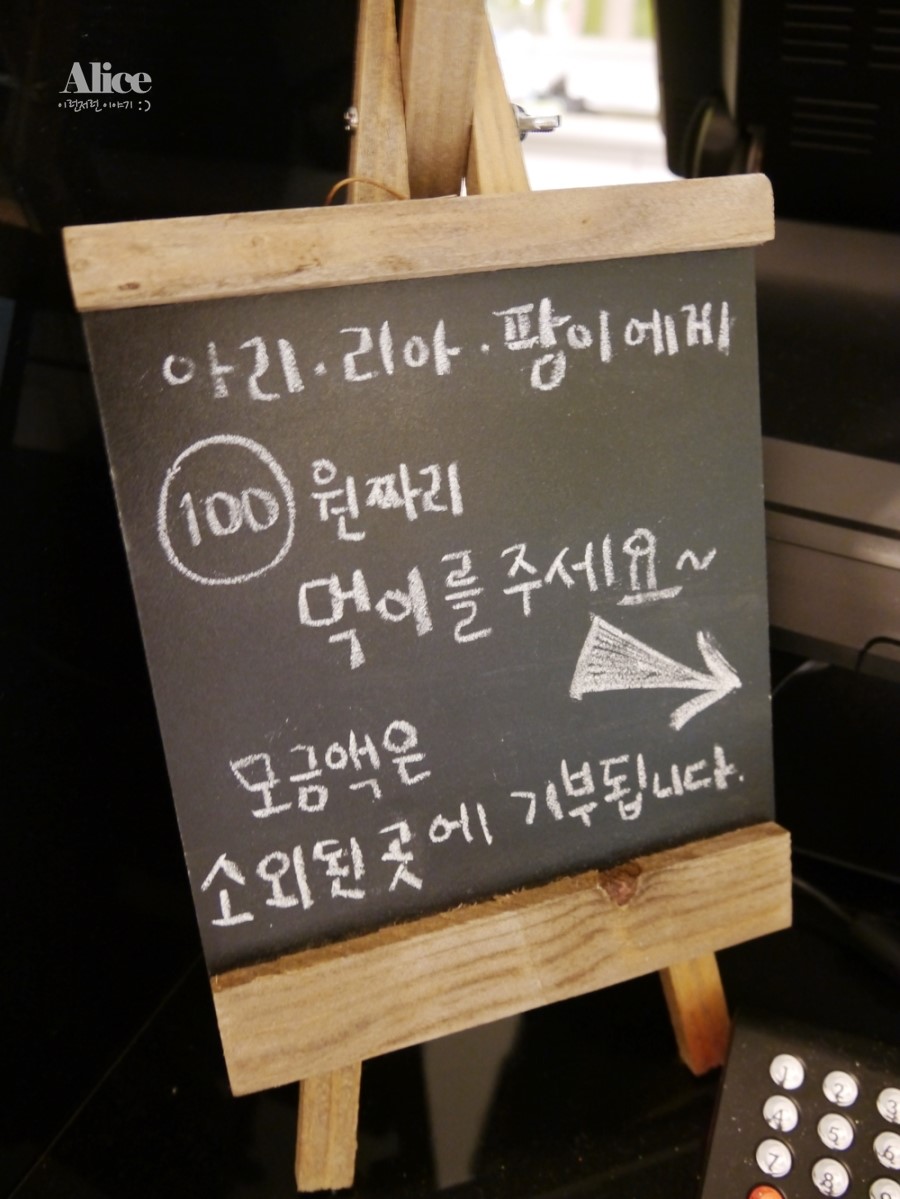 Alice
이런저런 이야기 :)
아리·리아·팡이에게
100 원짜리
먹이를 주세요~
모금액은
소외된 곳에 기부됩니다.
1 2 3
4 5 6
7 8 9